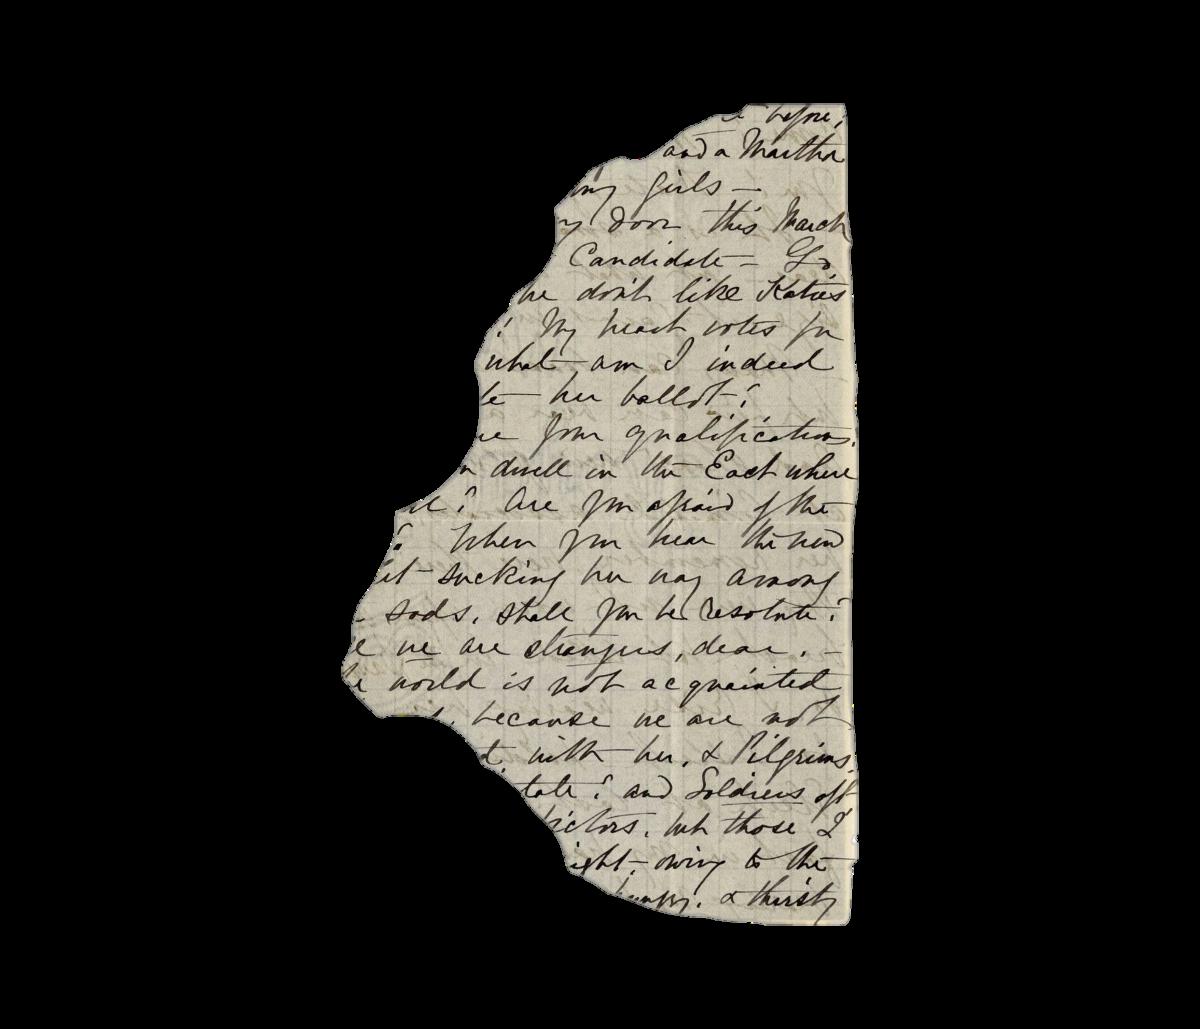 before,
and a Martha
my girls —
door this March
Candidate — Go
he don't like Katie's
! My heart votes for
what am I indeed
her ballot?
your qualifications,
dwell in the East where
? Are you afraid of the
? When you hear the new
sucking her way among
sods, shall you be resolute?
we are strangers, dear, —
world is not acquainted
because we are not
with her, & Pilgrims,
? and Soldiers oft
victors, but those I
owing to the
hungry, & thirsty